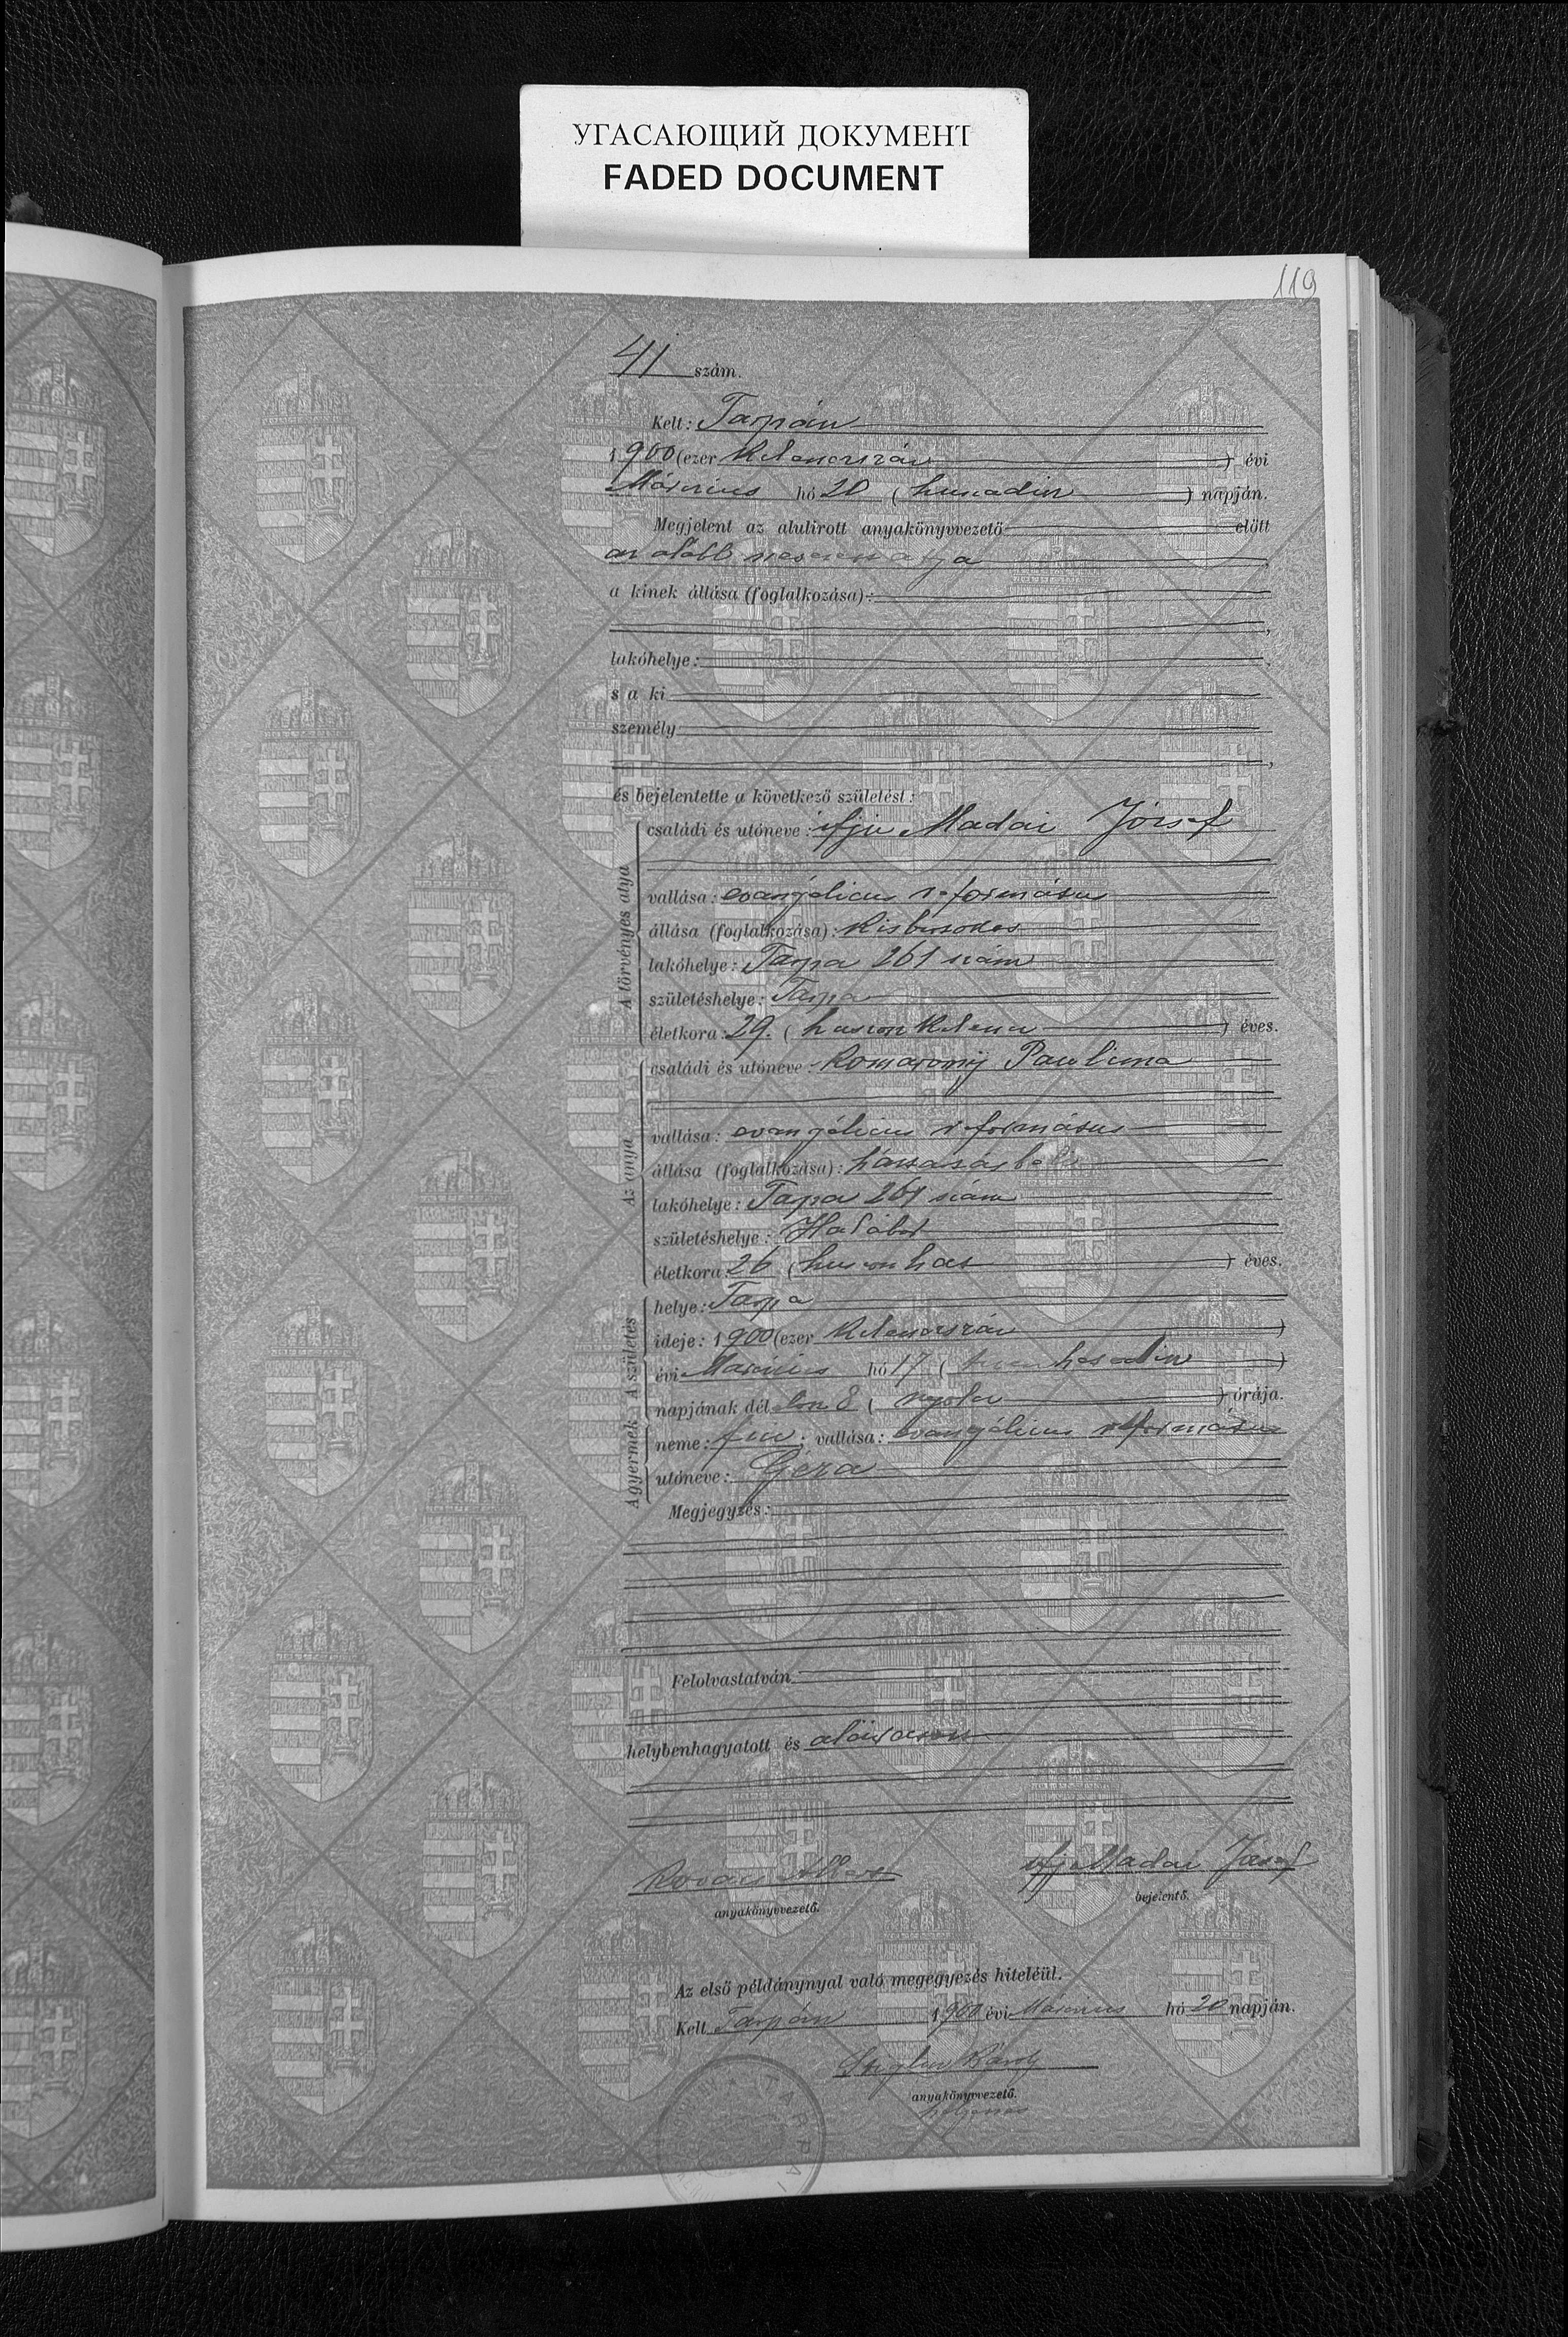 УГАСАЮЩИЙ ДОКУМЕНТ
FADED DOCUMENT
119
41 szám.
Kelt: Tarpán
1900 (ezer kilenczszáz ) évi
Márczius hó 20 ( huszadik ) napján.
Megjelent az alulirott anyakönyvvezető előtt
az alább nevezett atya
a kinek állása (foglalkozása):
lakóhelye:
s a ki
személy
és bejelentette a következő születést:
A törvényes atya
családi és utóneve: ifju Madai József
vallása: evangélicus református
állása (foglalkozása): kisbirtokos
lakóhelye: Tarpa 261 szám
születéshelye: Tarpa
életkora: 29. ( huszonkilencz ) éves.
Az anya
családi és utóneve: Komaromy Paulina
vallása: evangélicus református
állása (foglalkozása): házastársbeli
lakóhelye: Tarpa 261 szám
születéshelye: Halábor
életkora 26 ( huszonhat ) éves.
A születés
helye: Tarpa
ideje: 1900 (ezer kilenczszáz )
évi Márczius hó 17 ( tizenhetedik )
napjának dél előtt 8 ( nyolcz ) órája.
A gyermek
neme: fiu; vallása: evangélicus református
utóneve: Géza
Megjegyzés:
Felolvastatván
helybenhagyatott és aláiratott
Kovács Albert
anyakönyvvezető.
ifj Madai József
bejelentő.
Az első példánynyal való megegyezés hiteléül.
Kelt Tarpán 1900 évi Márczius hó 20 napján.
Károly
anyakönyvvezető.
helyettes
TARPAI